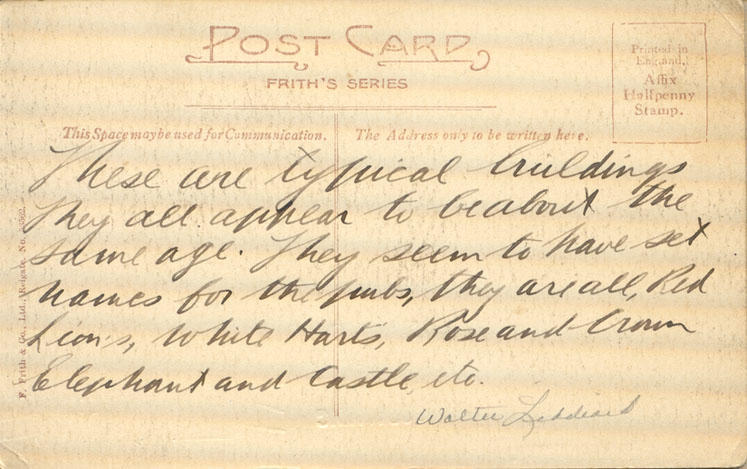 POST CARD
FRITH'S SERIES
Printed in
England.
Affix
Halfpenny
Stamp.
This Space may be used for Communication.
The Address only to be written here.
These are typical buildings
They all appear to be about the
same age. They seem to have set
names for the pubs, they are all, Red
Lions, White Harts, Rose and Crown
Elephant and Castle, etc.
Walter
F. Frith & Co., Ltd., Reigate. No.